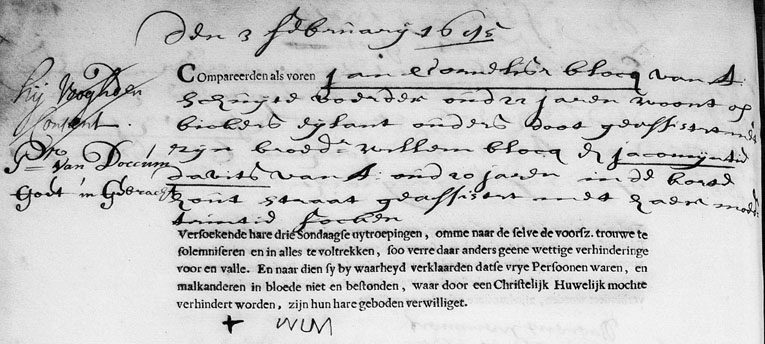 den 3 february 1695
hij vroegh een
Consent.
Pr van Doccum
Godt in Gebracht
Compareerden als voren Jan Cornelisz blocq van A:
schuijte voerder oud 22 jaren woont op
bickers eylant ouders doot geassisteert met
zijn broedr willem blocq & Jacomijntie
davits van A: oud 20 jaren in de korte
zout straat geassisteert met haer moedr
trintie jochen
Versoekende hare drie Sondaagse uytroepingen, omme naar de selve de voorsz. trouwe te
solemniseren en in alles te voltrekken, soo verre daar anders geene wettige verhinderinge
voor en valle. En naar dien sy by waarheyd verklaarden datse vrye Persoonen waren, en
malkanderen in bloede niet en bestonden, waar door een Christelijk Huwelijk mochte
verhindert worden, zijn hun hare geboden verwilliget.